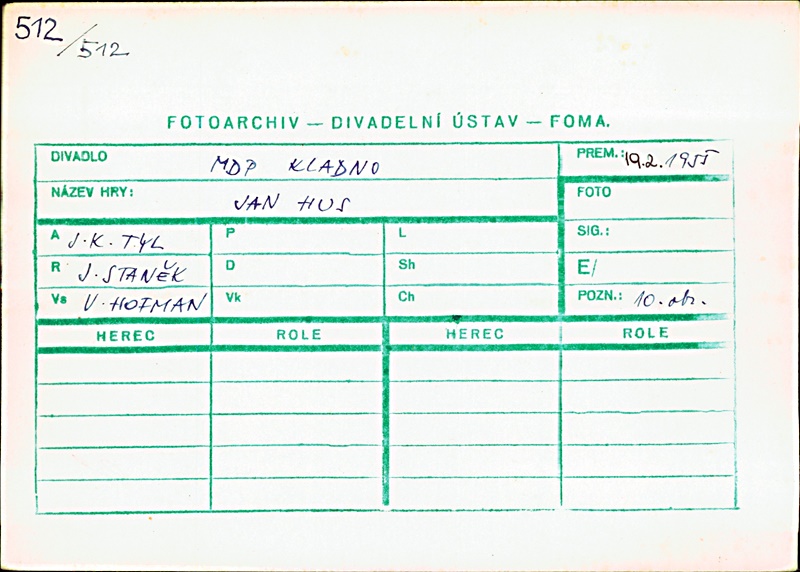 512
/512
FOTOARCHIV — DIVADELNÍ ÚSTAV — FOMA.
DIVADLO MDP KLADNO
PREM.: 19.2.1955
NÁZEV HRY: JAN HUS
FOTO
A J.K. TYL P L SIG.:
R J. STANĚK D Sh E/
Vs V. HOFMAN Vk Ch POZN.: 10. obr.
HEREC ROLE HEREC ROLE